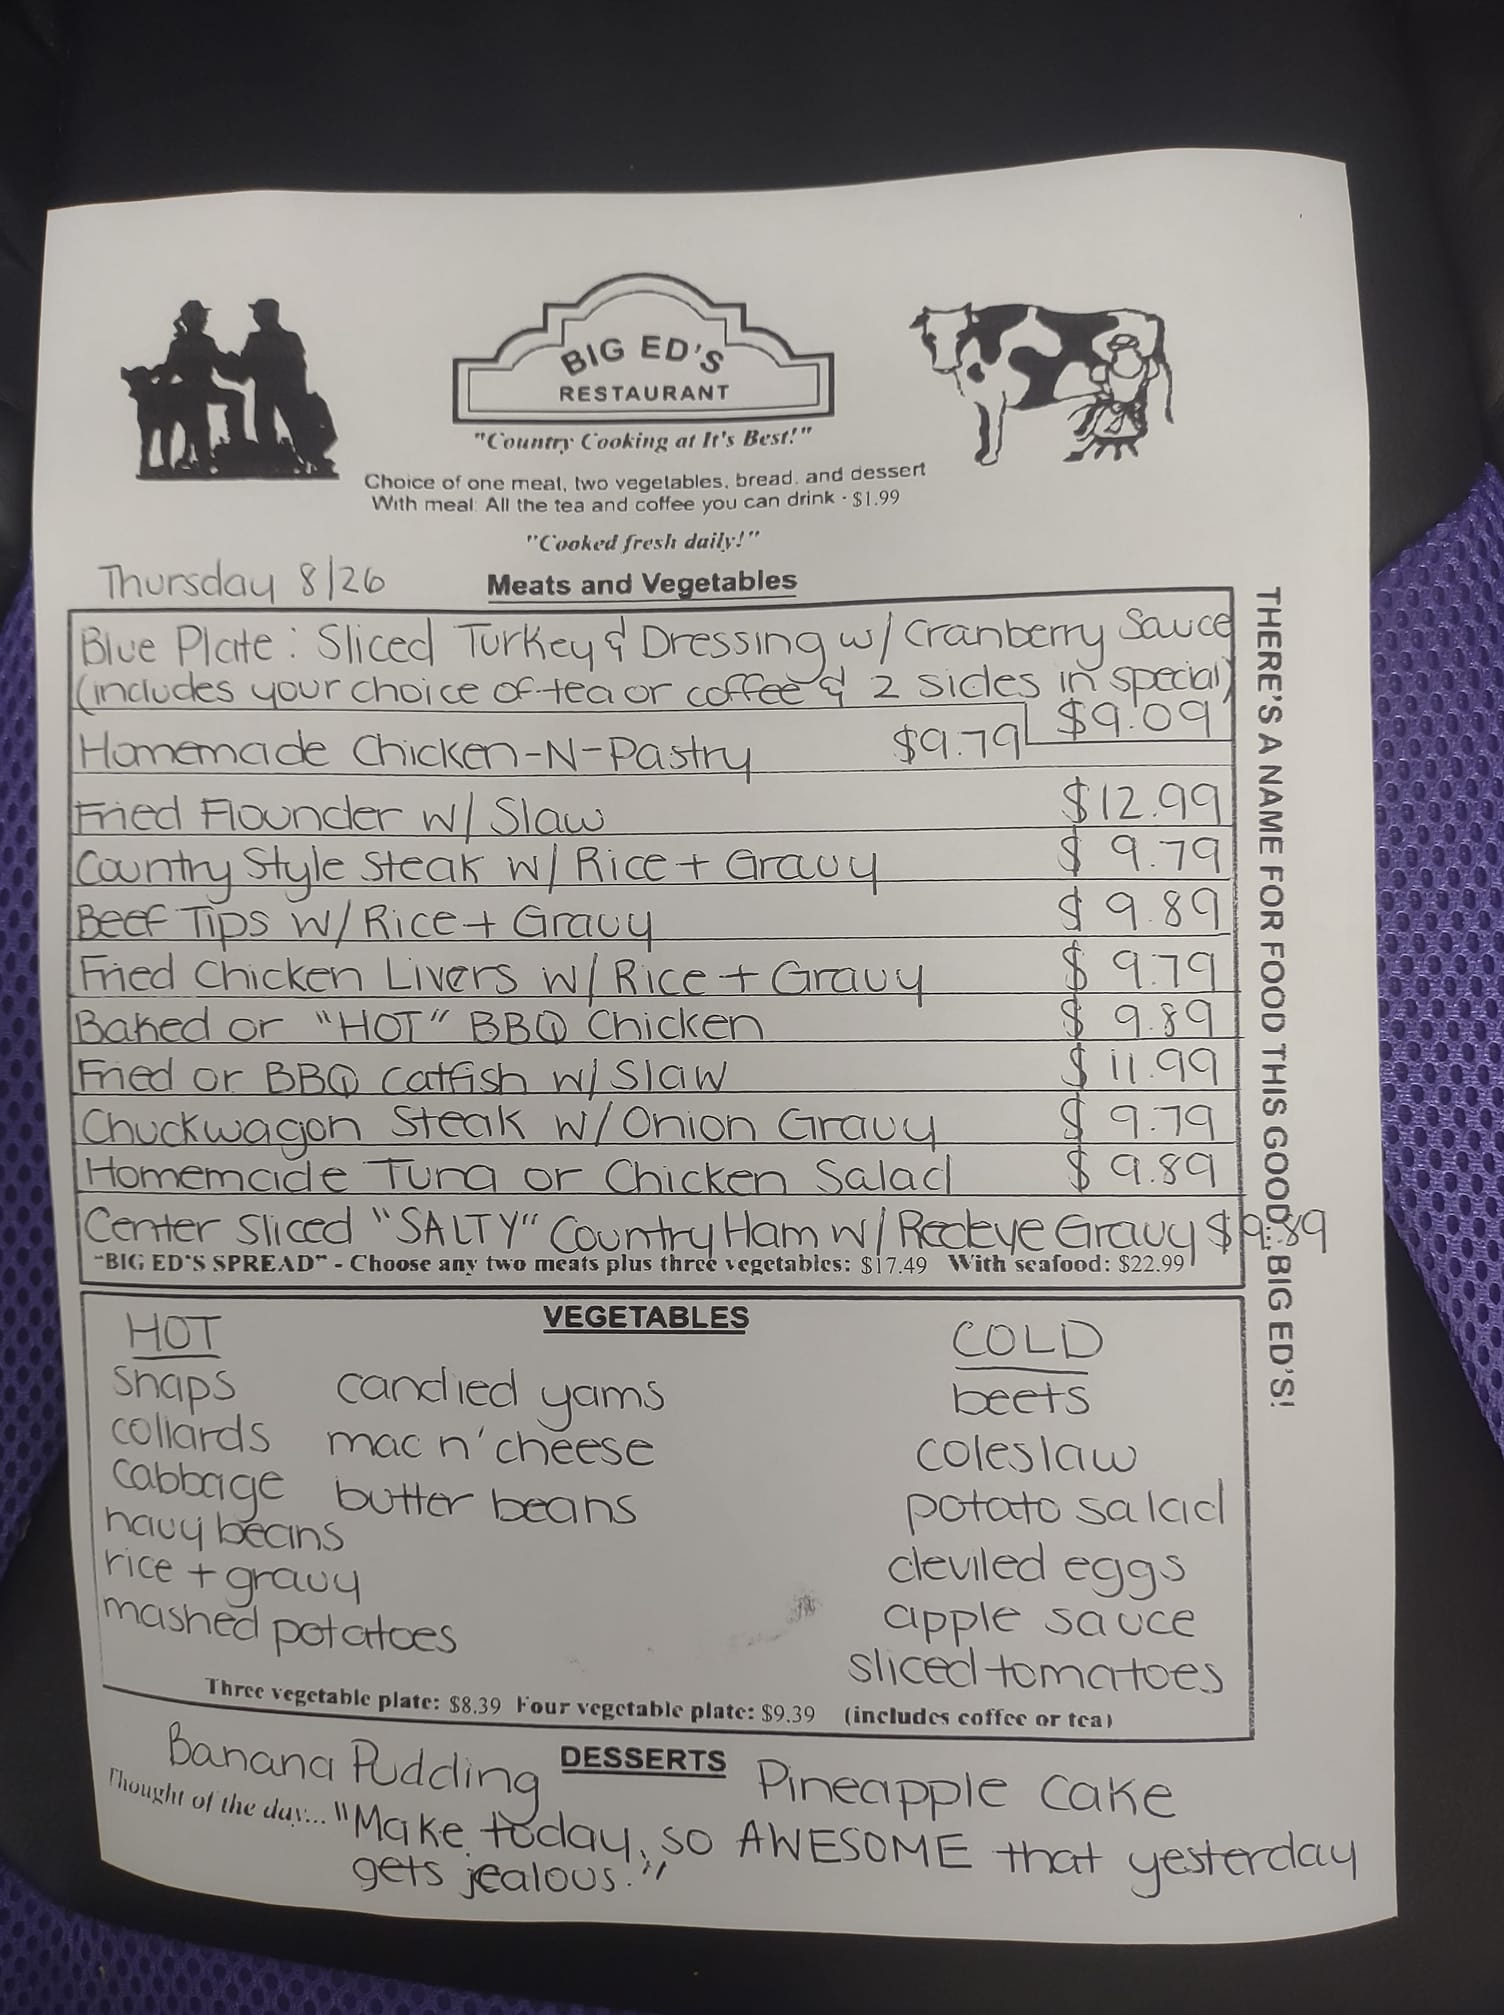 BIG ED'S
RESTAURANT
"Country Cooking at It's Best!"
Choice of one meat, two vegetables, bread, and dessert
With meal: All the tea and coffee you can drink - $1.99
"Cooked fresh daily!"
Thursday 8/26 Meats and Vegetables
Blue Plate: Sliced Turkey & Dressing w/ Cranberry Sauce
(includes your choice of tea or coffee & 2 sides in special) $9.09
Homemade Chicken-N-Pastry $9.79
Fried Flounder w/ Slaw $12.99
Country Style Steak w/ Rice + Gravy $9.79
Beef Tips w/ Rice + Gravy $9.89
Fried Chicken Livers w/ Rice + Gravy $9.79
Baked or "HOT" BBQ Chicken $9.89
Fried or BBQ Catfish w/ Slaw $11.99
Chuckwagon Steak w/ Onion Gravy $9.79
Homemade Tuna or Chicken Salad $9.89
Center Sliced "SALTY" Country Ham w/ Redeye Gravy $9.89
"BIG ED'S SPREAD" - Choose any two meats plus three vegetables: $17.49 With seafood: $22.99
THERE'S A NAME FOR FOOD THIS GOOD... BIG ED'S!
VEGETABLES
HOT
snaps
collards
cabbage
navy beans
rice + gravy
mashed potatoes
candied yams
mac n' cheese
butter beans
COLD
beets
coleslaw
potato salad
deviled eggs
apple sauce
sliced tomatoes
Three vegetable plate: $8.39 Four vegetable plate: $9.39 (includes coffee or tea)
DESSERTS
Banana Pudding
Pineapple Cake
Thought of the day... "Make today, so AWESOME that yesterday
gets jealous."